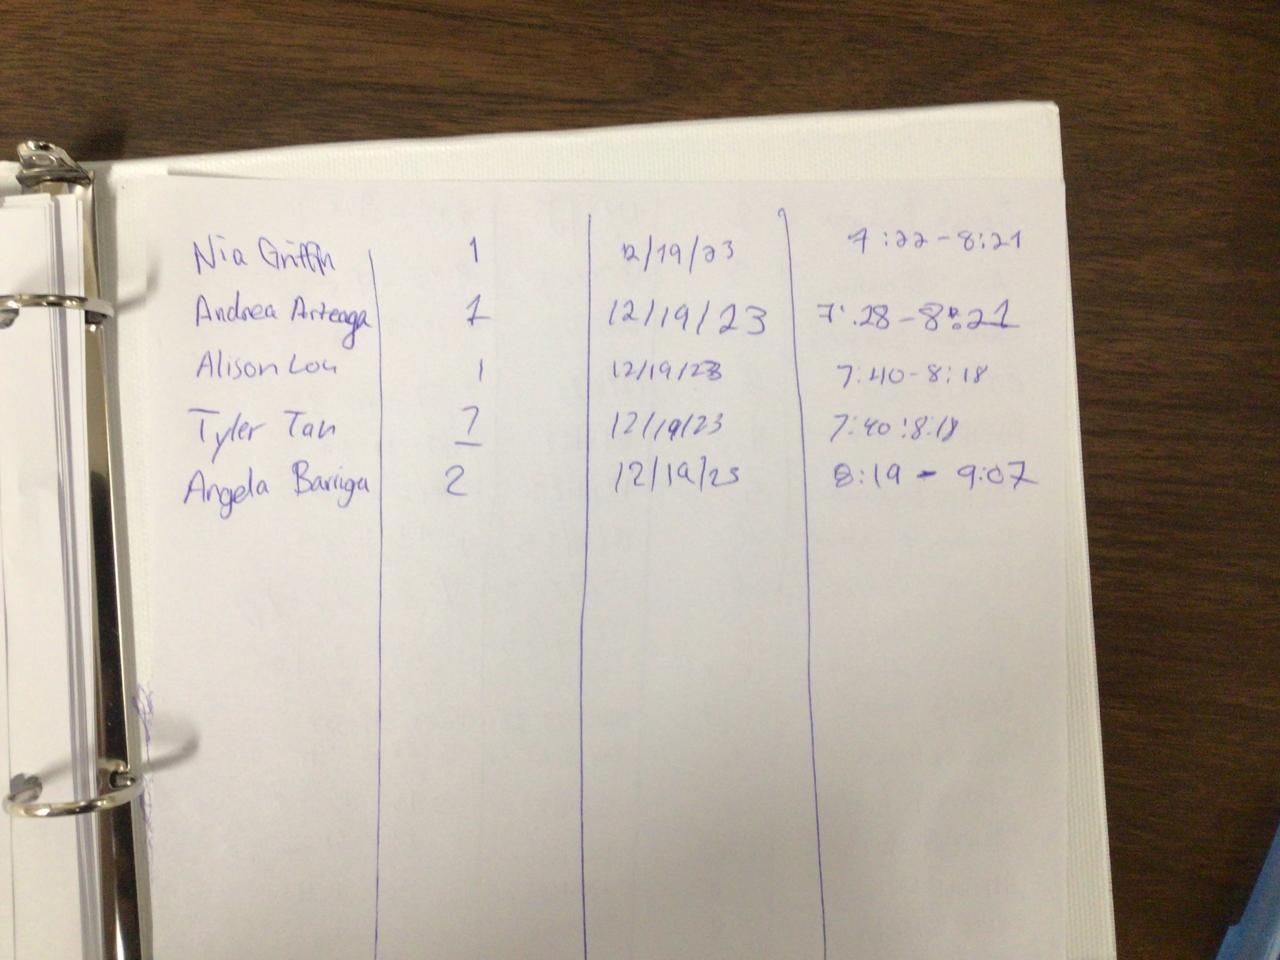 Nia Griffin 1 12/19/23 7:22-8:21
Andrea Arteaga 1 12/19/23 7:28-8:21
Alison Lou 1 12/19/23 7:40-8:18
Tyler Tan 1 12/19/23 7:40:8:18
Angela Barriga 2 12/19/23 8:19-9:07